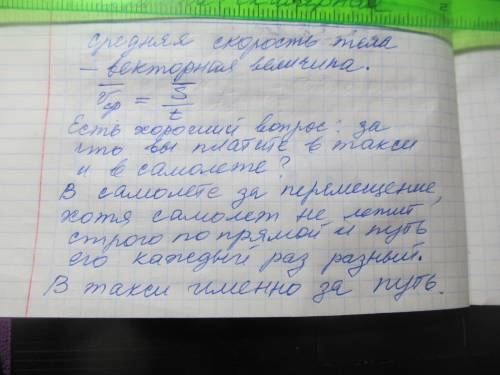 средняя скорость тела
– векторная величина.
v̅ср = S̅/t
Есть хороший вопрос: за
что вы платите в такси
и в самолете?
В самолете за перемещение,
хотя самолет не летит
строго по прямой и путь
его каждый раз разный.
В такси именно за путь.